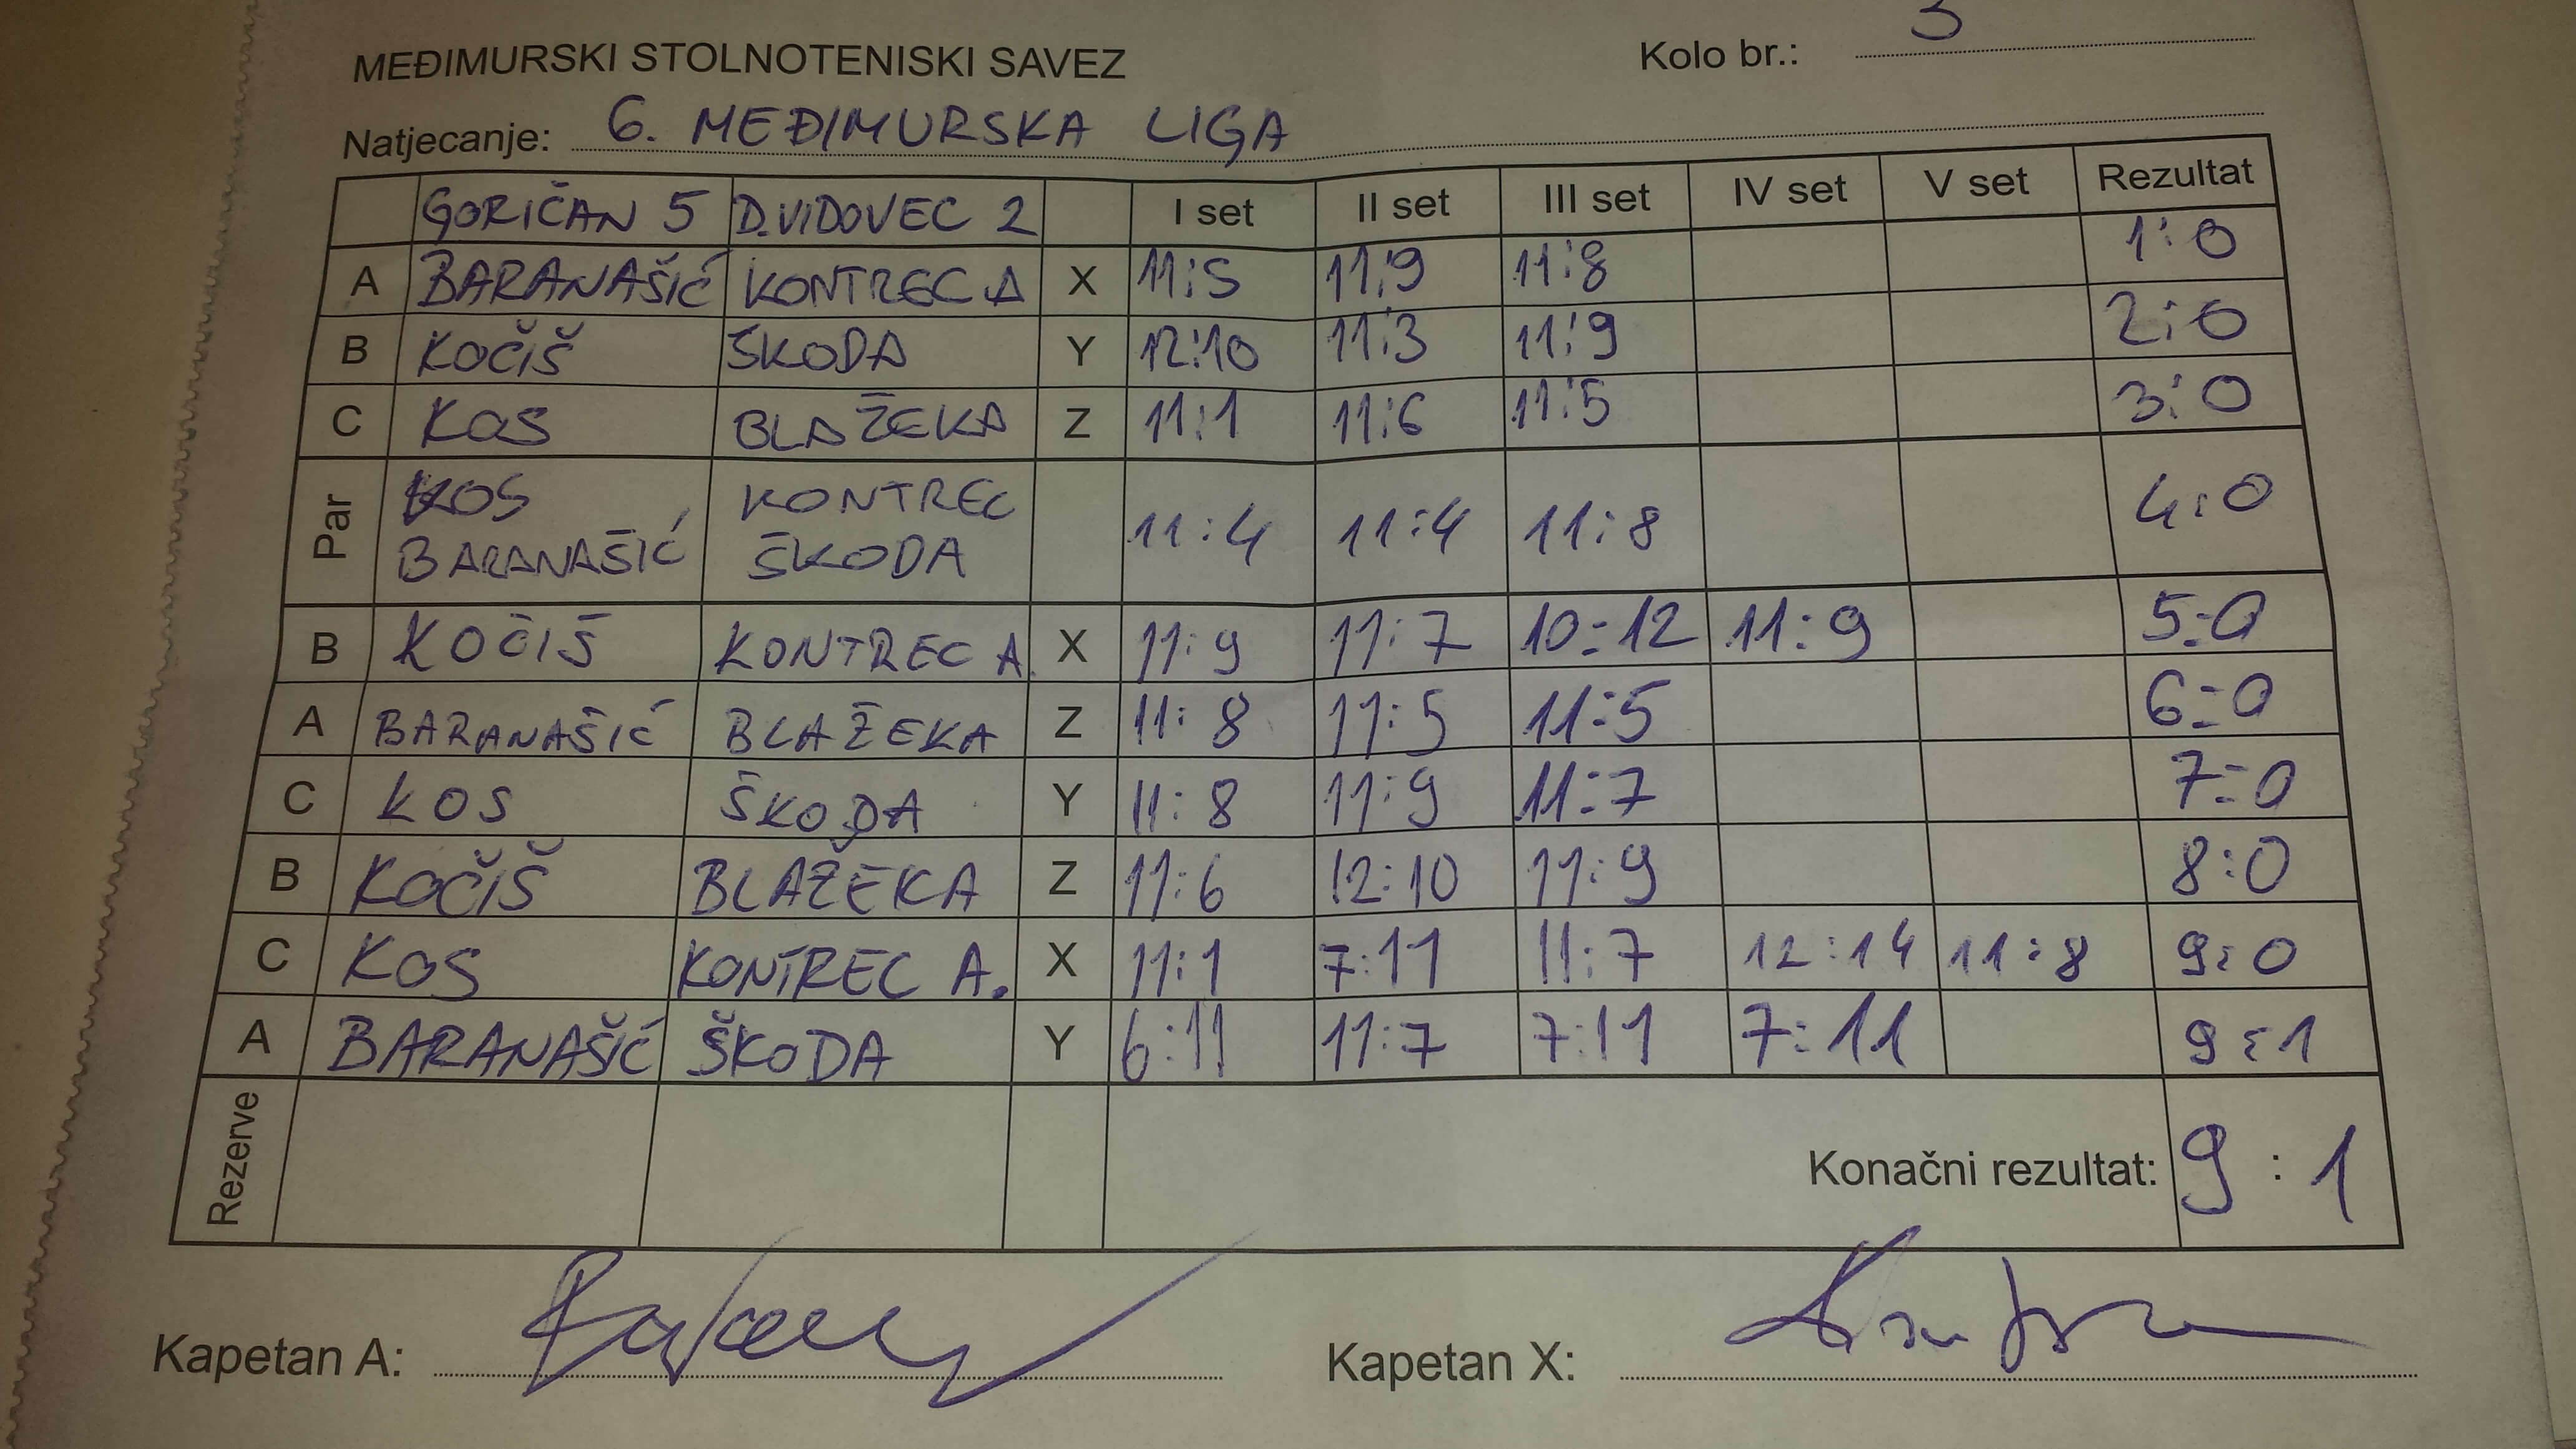 MEĐIMURSKI STOLNOTENISKI SAVEZ
Kolo br.: 3
Natjecanje: 6. MEĐIMURSKA LIGA
GORIČAN 5 D.VIDOVEC 2 I set II set III set IV set V set Rezultat
A BARANAŠIĆ KONTREC A X 11:5 11:9 11:8 1:0
B KOČIŠ ŠKODA Y 12:10 11:3 11:9 2:0
C KOS BLAŽEKA Z 11:1 11:6 11:5 3:0
Par KOS BARANAŠIĆ KONTREC ŠKODA 11:4 11:4 11:8 4:0
B KOČIŠ KONTREC A. X 11:9 11:7 10:12 11:9 5:0
A BARANAŠIĆ BLAŽEKA Z 11:8 11:5 11:5 6:0
C KOS ŠKODA Y 11:8 11:9 11:7 7:0
B KOČIŠ BLAŽEKA Z 11:6 12:10 11:9 8:0
C KOS KONTREC A. X 11:1 7:11 11:7 12:14 11:8 9:0
A BARANAŠIĆ ŠKODA Y 6:11 11:7 7:11 7:11 9:1
Rezerve Konačni rezultat: 9:1
Kapetan A: Kapetan X: